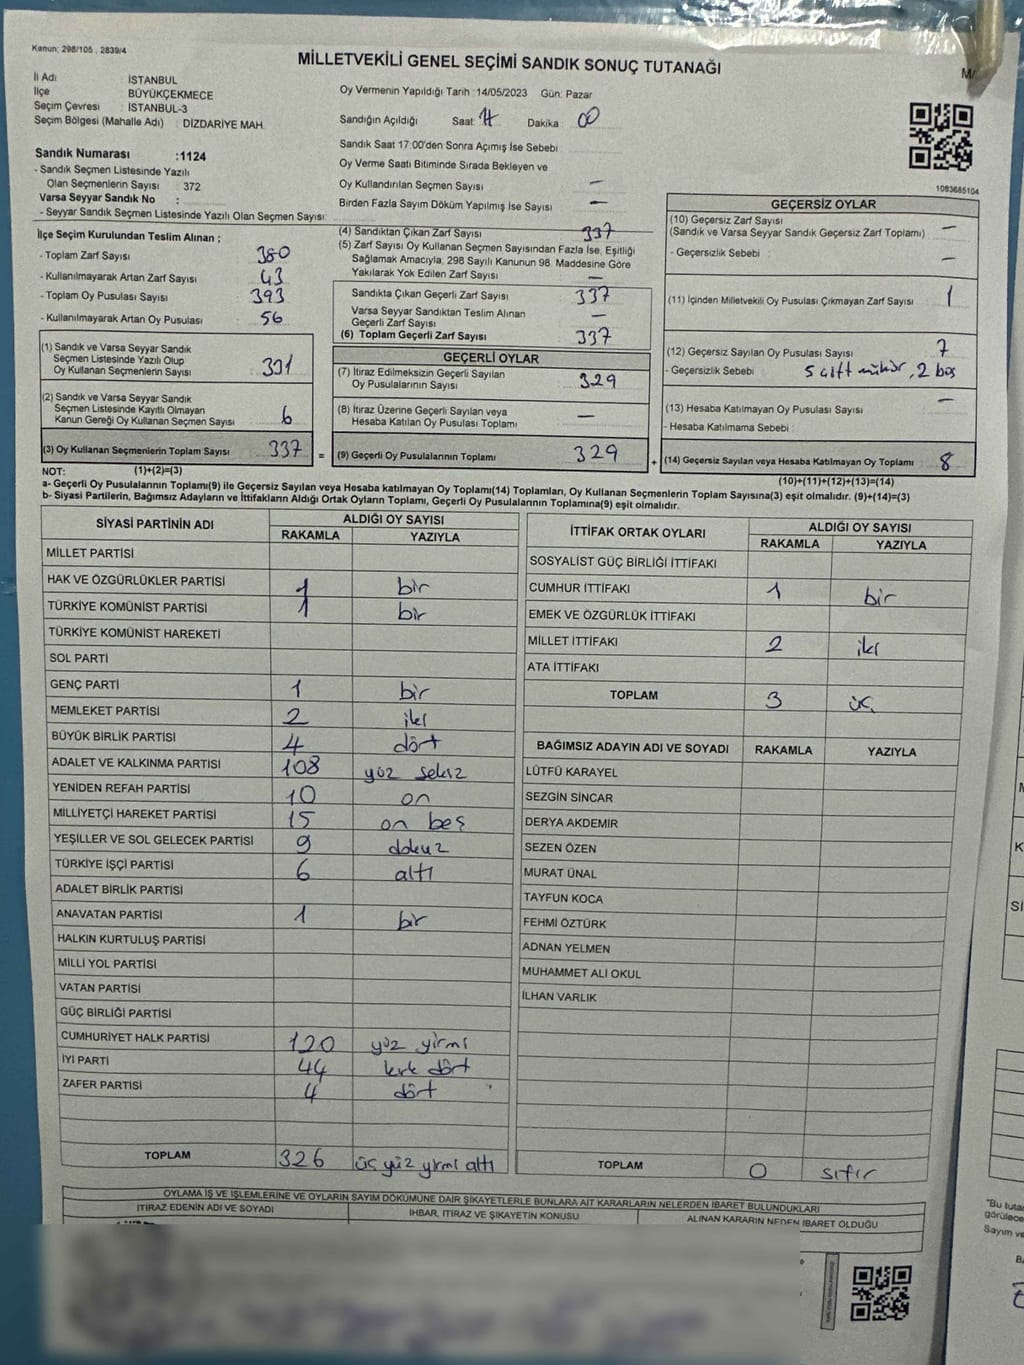 Kanun: 298/105 , 2839/4
MİLLETVEKİLİ GENEL SEÇİMİ SANDIK SONUÇ TUTANAĞI
İl Adı : İSTANBUL
İlçe : BÜYÜKÇEKMECE
Seçim Çevresi : İSTANBUL-3
Seçim Bölgesi (Mahalle Adı) : DİZDARİYE MAH.
Sandık Numarası :1124
- Sandık Seçmen Listesinde Yazılı
Olan Seçmenlerin Sayısı : 372
Varsa Seyyar Sandık No :
- Seyyar Sandık Seçmen Listesinde Yazılı Olan Seçmen Sayısı:
Oy Vermenin Yapıldığı Tarih : 14/05/2023 Gün: Pazar
Sandığın Açıldığı Saat: 17 Dakika : 00
Sandık Saat 17:00'den Sonra Açımış İse Sebebi :
Oy Verme Saati Bitiminde Sırada Bekleyen ve
Oy Kullandırılan Seçmen Sayısı : —
Birden Fazla Sayım Döküm Yapılmış İse Sayısı : —
1083685104
İlçe Seçim Kurulundan Teslim Alınan ;
- Toplam Zarf Sayısı : 380
- Kullanılmayarak Artan Zarf Sayısı : 43
- Toplam Oy Pusulası Sayısı : 393
- Kullanılmayarak Artan Oy Pusulası : 56
(1) Sandık ve Varsa Seyyar Sandık
Seçmen Listesinde Yazılı Olup
Oy Kullanan Seçmenlerin Sayısı : 331
(2) Sandık ve Varsa Seyyar Sandık
Seçmen Listesinde Kayıtlı Olmayan
Kanun Gereği Oy Kullanan Seçmen Sayısı : 6
(3) Oy Kullanan Seçmenlerin Toplam Sayısı : 337
(4) Sandıktan Çıkan Zarf Sayısı : 337
(5) Zarf Sayısı Oy Kullanan Seçmen Sayısından Fazla İse, Eşitliği
Sağlamak Amacıyla, 298 Sayılı Kanunun 98. Maddesine Göre
Yakılarak Yok Edilen Zarf Sayısı : —
Sandıkta Çıkan Geçerli Zarf Sayısı : 337
Varsa Seyyar Sandıktan Teslim Alınan
Geçerli Zarf Sayısı : —
(6) Toplam Geçerli Zarf Sayısı : 337
GEÇERLİ OYLAR
(7) İtiraz Edilmeksizin Geçerli Sayılan
Oy Pusulalarının Sayısı : 329
(8) İtiraz Üzerine Geçerli Sayılan veya
Hesaba Katılan Oy Pusulası Toplamı : —
= (9) Geçerli Oy Pusulalarının Toplamı : 329
GEÇERSİZ OYLAR
(10) Geçersiz Zarf Sayısı
(Sandık ve Varsa Seyyar Sandık Geçersiz Zarf Toplamı) : —
- Geçersizlik Sebebi : —
(11) İçinden Milletvekili Oy Pusulası Çıkmayan Zarf Sayısı : 1
(12) Geçersiz Sayılan Oy Pusulası Sayısı : 7
- Geçersizlik Sebebi : 5 çift mühür, 2 boş
(13) Hesaba Katılmayan Oy Pusulası Sayısı : —
- Hesaba Katılmama Sebebi :
+ (14) Geçersiz Sayılan veya Hesaba Katılmayan Oy Toplamı : 8
NOT: (1)+(2)=(3) (10)+(11)+(12)+(13)=(14)
a- Geçerli Oy Pusulalarının Toplamı(9) ile Geçersiz Sayılan veya Hesaba katılmayan Oy Toplamı(14) Toplamları, Oy Kullanan Seçmenlerin Toplam Sayısına(3) eşit olmalıdır. (9)+(14)=(3)
b- Siyasi Partilerin, Bağımsız Adayların ve İttifakların Aldığı Ortak Oyların Toplamı, Geçerli Oy Pusulalarının Toplamına(9) eşit olmalıdır.
SİYASİ PARTİNİN ADI ALDIĞI OY SAYISI
RAKAMLA YAZIYLA
MİLLET PARTİSİ
HAK VE ÖZGÜRLÜKLER PARTİSİ 1 bir
TÜRKİYE KOMÜNİST PARTİSİ 1 bir
TÜRKİYE KOMÜNİST HAREKETİ
SOL PARTİ
GENÇ PARTİ 1 bir
MEMLEKET PARTİSİ 2 iki
BÜYÜK BİRLİK PARTİSİ 4 dört
ADALET VE KALKINMA PARTİSİ 108 yüz sekiz
YENİDEN REFAH PARTİSİ 10 on
MİLLİYETÇİ HAREKET PARTİSİ 15 on beş
YEŞİLLER VE SOL GELECEK PARTİSİ 9 dokuz
TÜRKİYE İŞÇİ PARTİSİ 6 altı
ADALET BİRLİK PARTİSİ
ANAVATAN PARTİSİ 1 bir
HALKIN KURTULUŞ PARTİSİ
MİLLİ YOL PARTİSİ
VATAN PARTİSİ
GÜÇ BİRLİĞİ PARTİSİ
CUMHURİYET HALK PARTİSİ 120 yüz yirmi
İYİ PARTİ 44 kırk dört
ZAFER PARTİSİ 4 dört
TOPLAM 326 üç yüz yirmi altı
İTTİFAK ORTAK OYLARI ALDIĞI OY SAYISI
RAKAMLA YAZIYLA
SOSYALİST GÜÇ BİRLİĞİ İTTİFAKI
CUMHUR İTTİFAKI 1 bir
EMEK VE ÖZGÜRLÜK İTTİFAKI
MİLLET İTTİFAKI 2 iki
ATA İTTİFAKI
TOPLAM 3 üç
BAĞIMSIZ ADAYIN ADI VE SOYADI RAKAMLA YAZIYLA
LÜTFÜ KARAYEL
SEZGİN SİNCAR
DERYA AKDEMİR
SEZEN ÖZEN
MURAT ÜNAL
TAYFUN KOCA
FEHMİ ÖZTÜRK
ADNAN YELMEN
MUHAMMET ALİ OKUL
İLHAN VARLIK
TOPLAM 0 sıfır
OYLAMA İŞ VE İŞLEMLERİNE VE OYLARIN SAYIM DÖKÜMÜNE DAİR ŞİKAYETLERLE BUNLARA AİT KARARLARIN NELERDEN İBARET BULUNDUKLARI
İTİRAZ EDENİN ADI VE SOYADI İHBAR, İTİRAZ VE ŞİKAYETİN KONUSU ALINAN KARARIN NEDEN İBARET OLDUĞU
"Bu tuta
görülece
Sayım ve